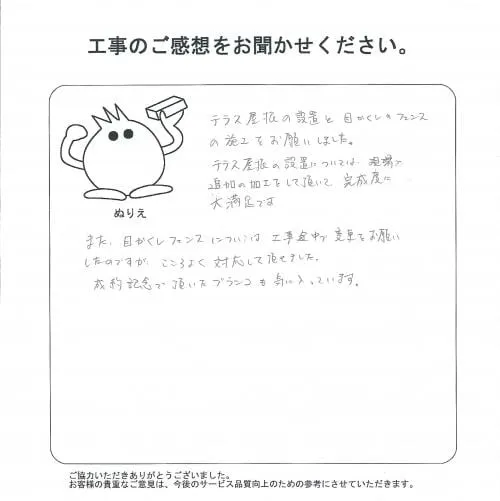 工事のご感想をお聞かせください。
テラス屋根の設置と目かくしのフェンス
の施工をお願いしました。
テラス屋根の設置については 現場で
追加の加工をして頂いて 完成度に
大満足です
ぬりえ
また、目かくしフェンスについては 工事途中で変更をお願い
したのですが、こころよく対応して頂けました。
成約記念で頂いたブランコも気に入っています。
ご協力いただきありがとうございました。
お客様の貴重なご意見は、今後のサービス品質向上のための参考にさせていただきます。